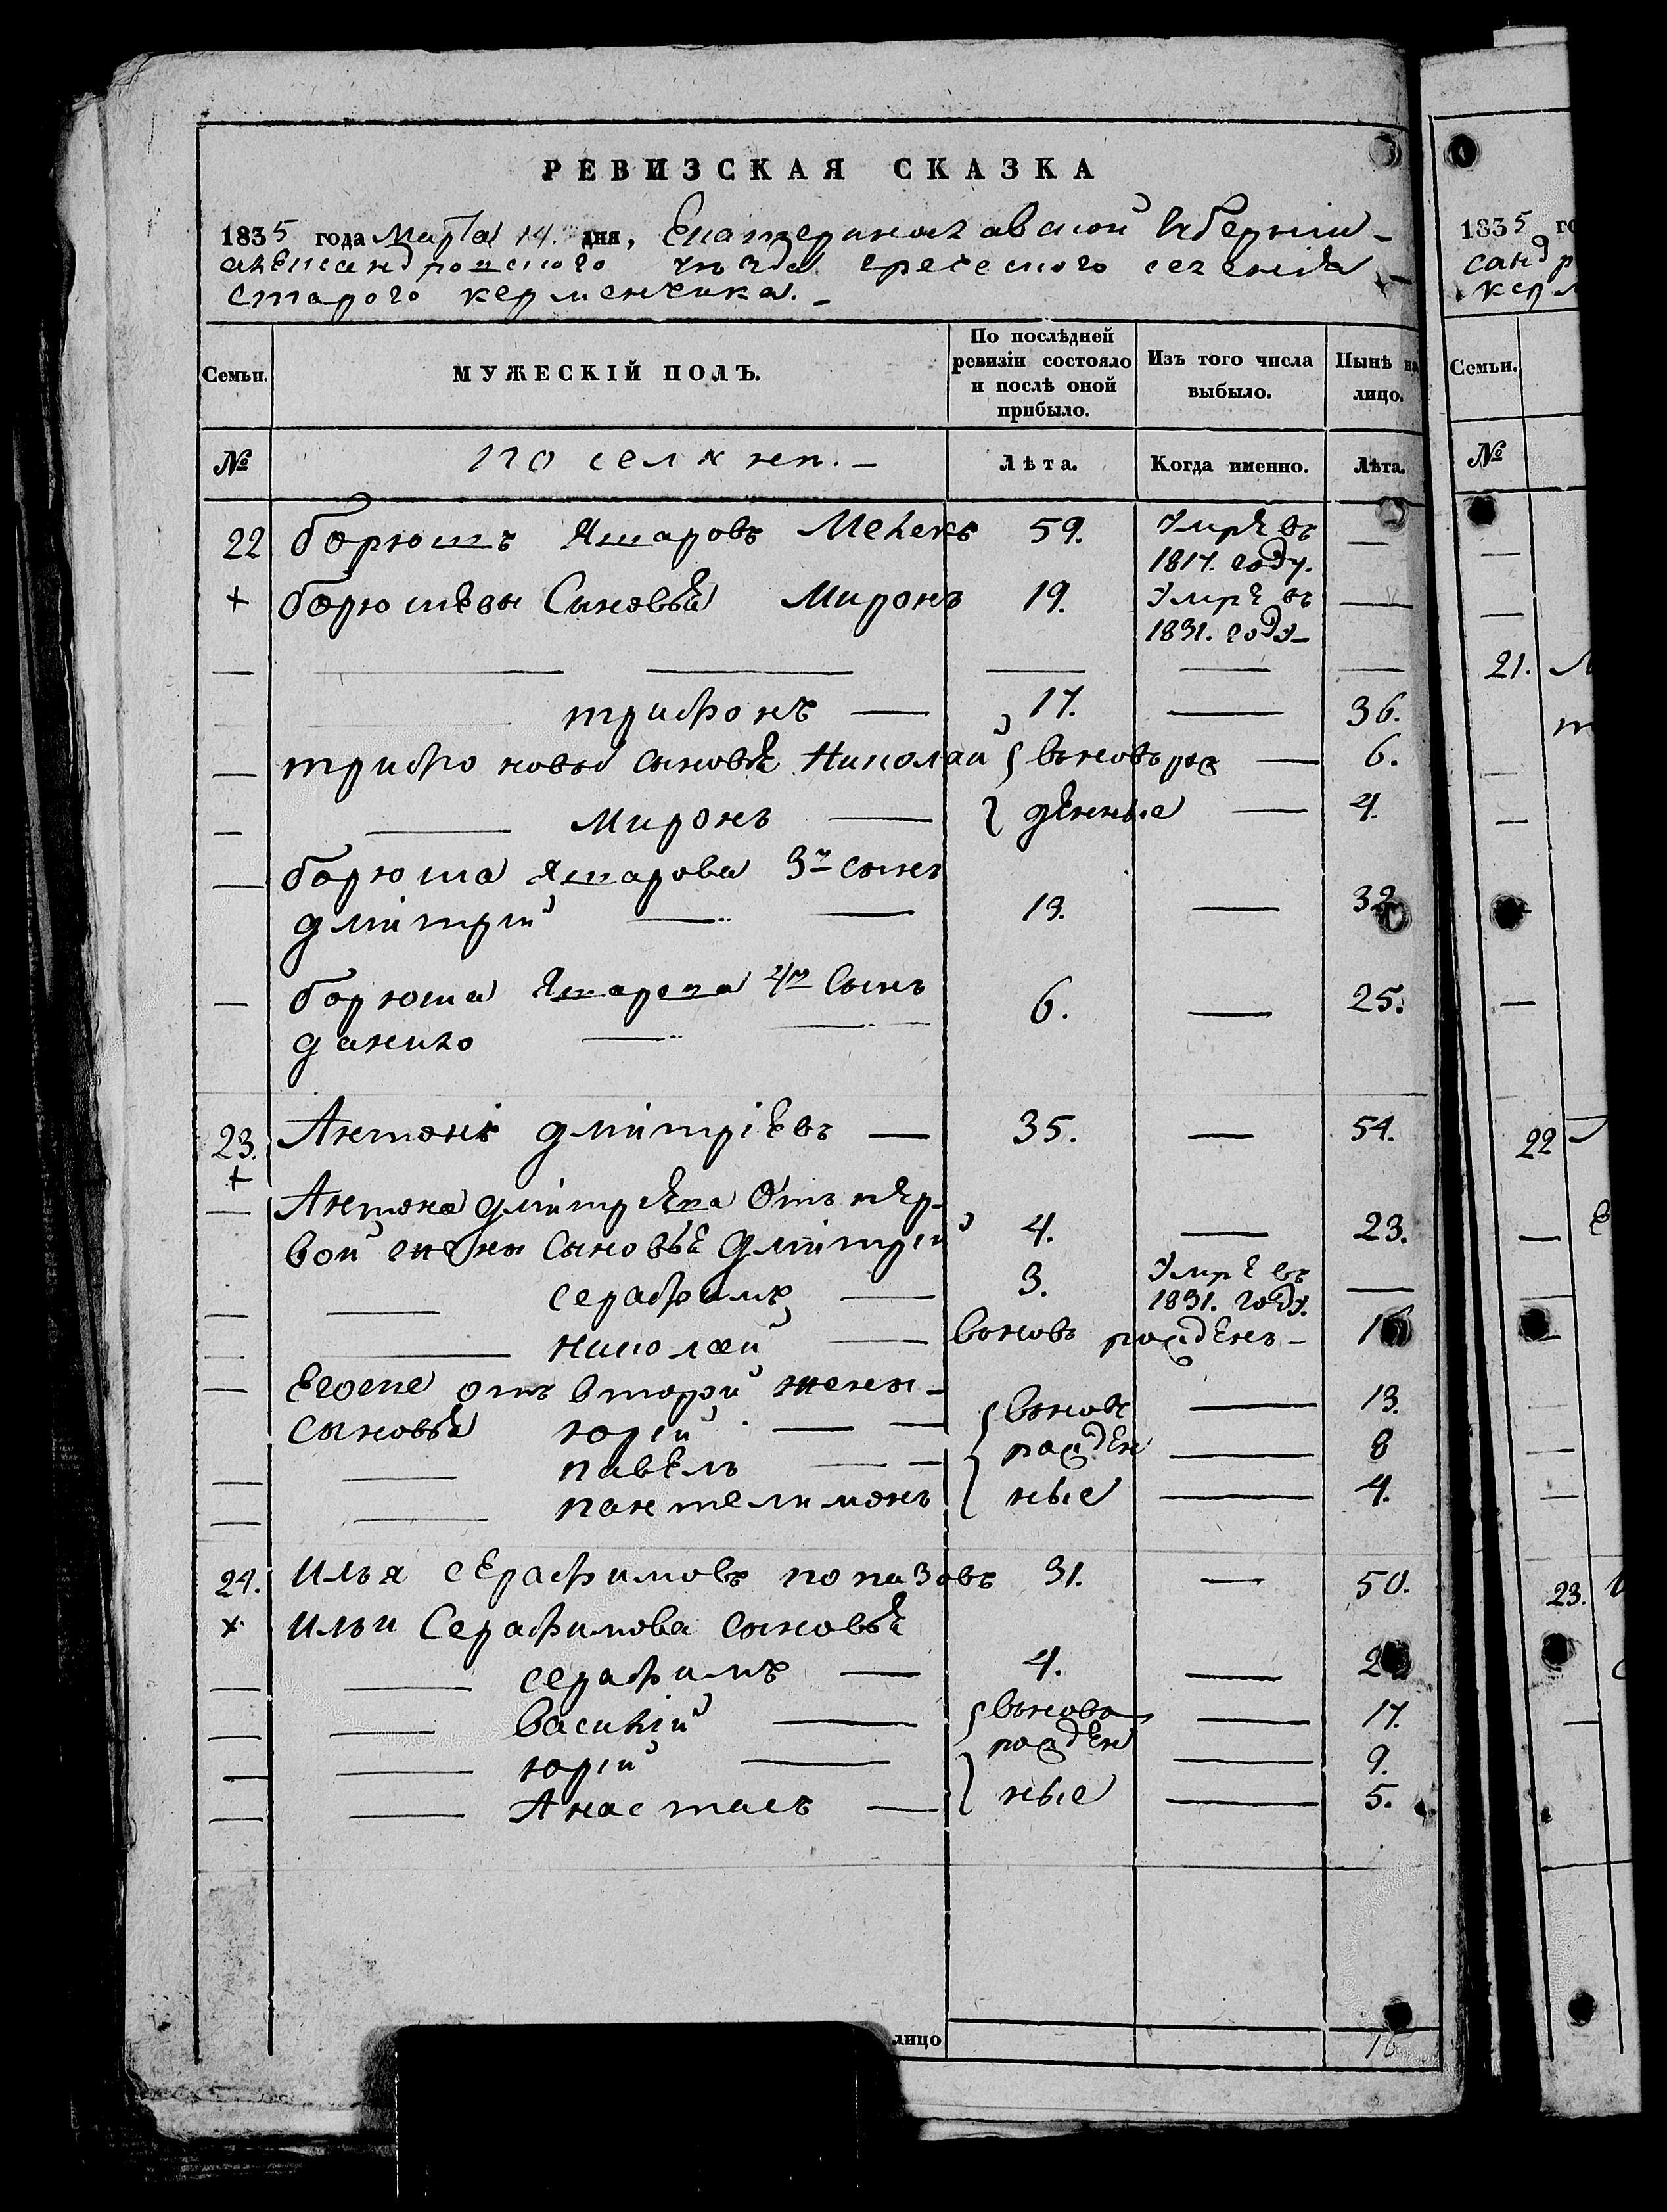 РЕВИЗСКАЯ СКАЗКА
1835 года Марта 14. дня, Екатеринославской Губернии -
александровского уезда греческого селения -
старого керменчика. -
Семьи.
МУЖЕСКІЙ ПОЛЪ.
По послѣдней ревизіи состояло и послѣ оной прибыло.
Изъ того числа выбыло.
Нынѣ на лицо.
№
поселяне. -
Лѣта.
Когда именно.
Лѣта.
22 борюшъ Яшаровъ Мелекъ 59. Умре въ 1817. году. —
+ борюшевы Сыновья Миронъ 19. Умре въ 1831. году - —
трифонъ — 17. — 36.
трифоновы сыновья Николай { вьновь рож — 6.
Миронъ — денные — 4.
борюша Яшарова 3й сынъ
дмитрий — — 13. — 32
борюша Яшарова 4й Сынъ
данило — — 6. — 25.
23. Антонъ дмитріевъ — 35. — 54.
+
Антона дмитрева Отъ пер-
вой жены Сыновья дмитрий 4. — 23.
серафимъ — 3. Умре въ 1831. году. —
николай — вьновь рожденъ -
Егоже отъ второй жены -
сыновья юрій — — { вьновь — 13.
павелъ — — рожден — 8
пантелимонъ ные — 4.
24. Илья серафимовъ попазовъ 31. — 50.
× Ильи Серафимова сыновья
серафимъ — 4. —
василій — { вьновь — 17.
юрій — рожден — 9.
Анастасъ — ные — 5.
лицо 16
1835 го
санд
кер
Семьи.
№
21.
22
23.